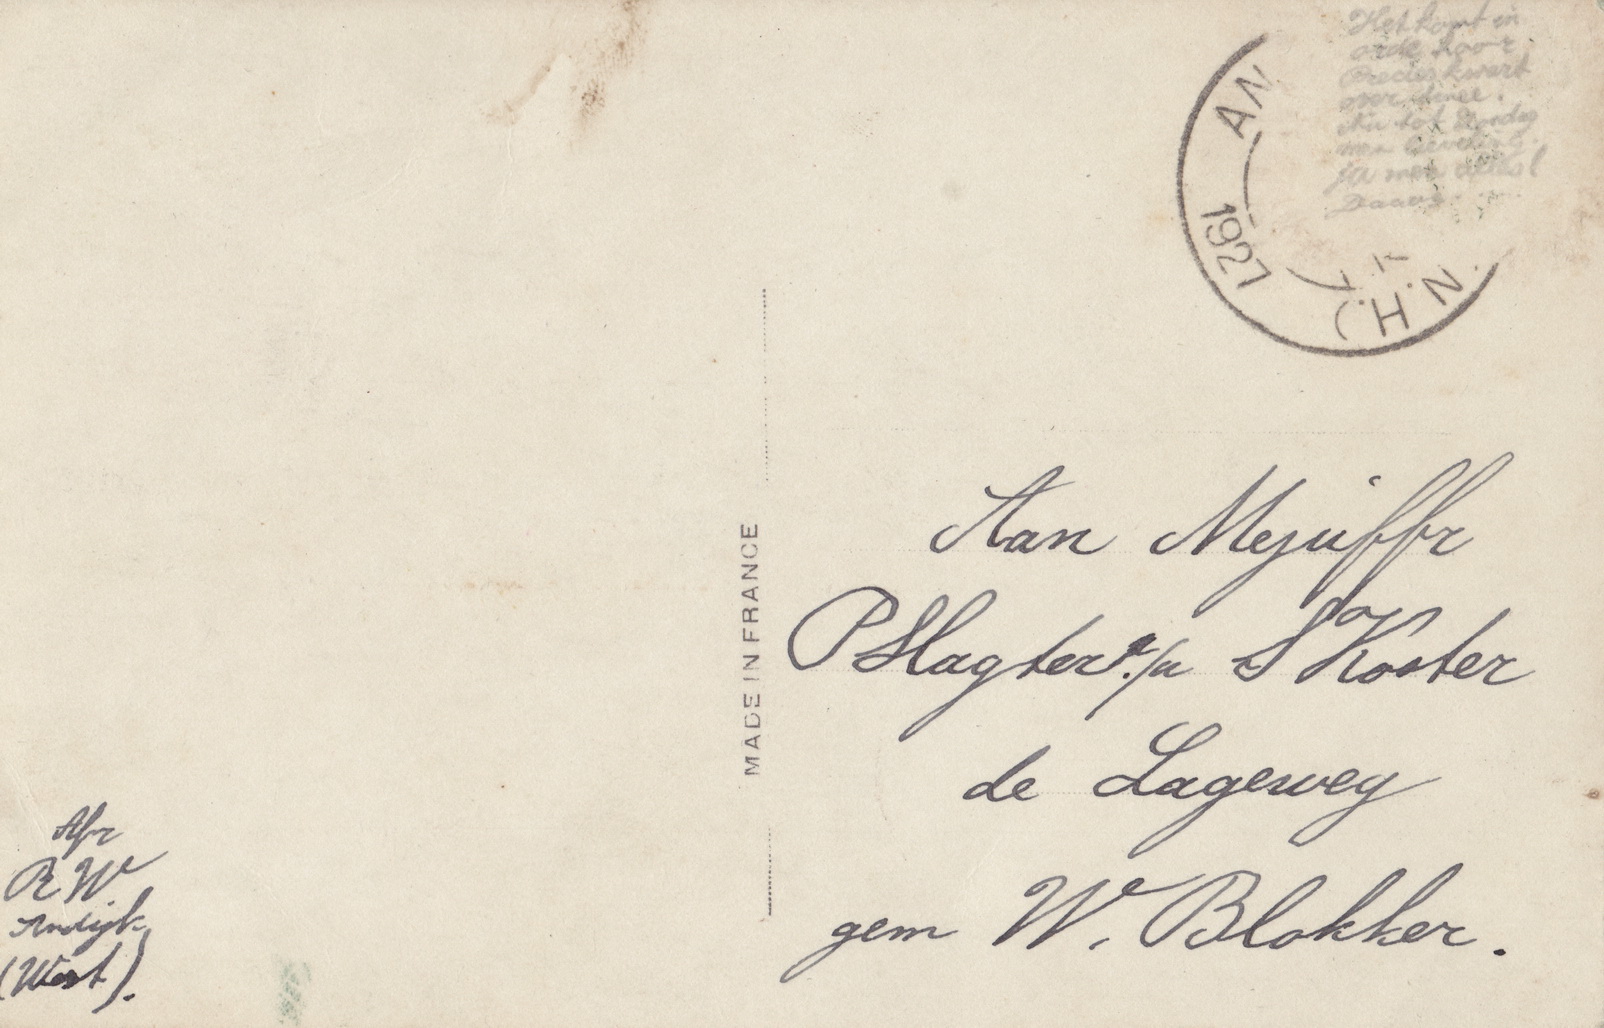 Het komt in
orde hoor
Precies kwart
over twee.
Nu tot Zondag
mn lieveling.
Ja mn alles!
Daaag.
AN
1927
K
(N.H.)
MADE IN FRANCE
Aan Mejuiffr
P Slagter p/a S Koster
de Lageweg
gem W. Blokker.
Afr
R W
Andijk
(West).